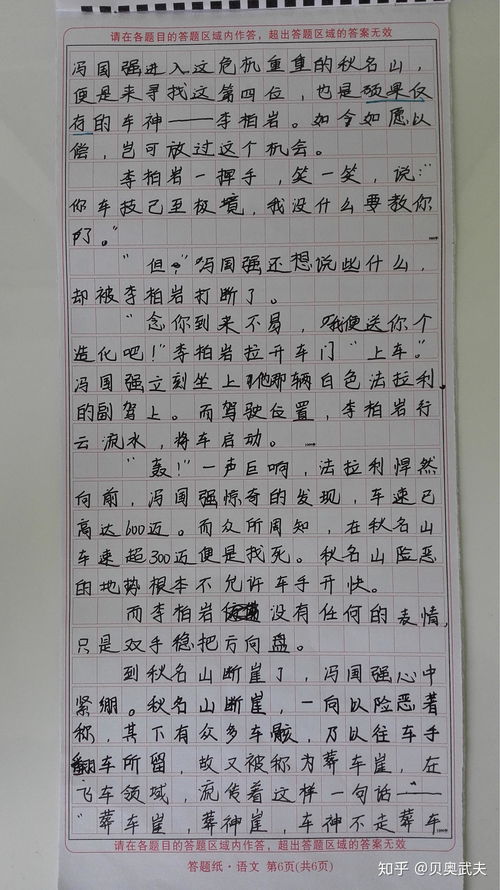 请在各题目的答题区域内作答，超出答题区域的答案无效
冯国强进入这危机重重的秋名山，
便是来寻找这第四位，也是硕果仅
存的车神——李柏岩。如今如愿以
偿，岂可放过这个机会。
李柏岩一挥手，笑一笑，说："
你车技已至极境，我没什么要教你
的。"
"但，"冯国强还想说些什么，
却被李柏岩打断了。
"念你到来不易，我便送你个
造化吧！"李柏岩拉开车门"上车。"
冯国强立刻坐上了他那辆白色法拉利
的副驾上。而驾驶位置，李柏岩行
云流水，将车启动。
"轰！"一声巨响，法拉利悍然
向前，冯国强惊奇的发现，车速已
高达600迈。而众所周知，在秋名山
车速超300迈便是找死。秋名山险恶
的地势根本不允许车手开快。
而李柏岩没有任何的表情，
只是双手稳把方向盘。
到秋名山断崖了，冯国强心中
紧绷。秋名山断崖，一向以险恶著
称，其下有众多车骸，乃以往车手
翻车所留，故又被称为葬车崖，在
飞车领域，流传着这样一句话——
"葬车崖，葬神崖，车神不走葬车
请在各题目的答题区域内作答，超出答题区域的答案无效
答题纸·语文 第6页(共6页)
知乎 @贝奥武夫